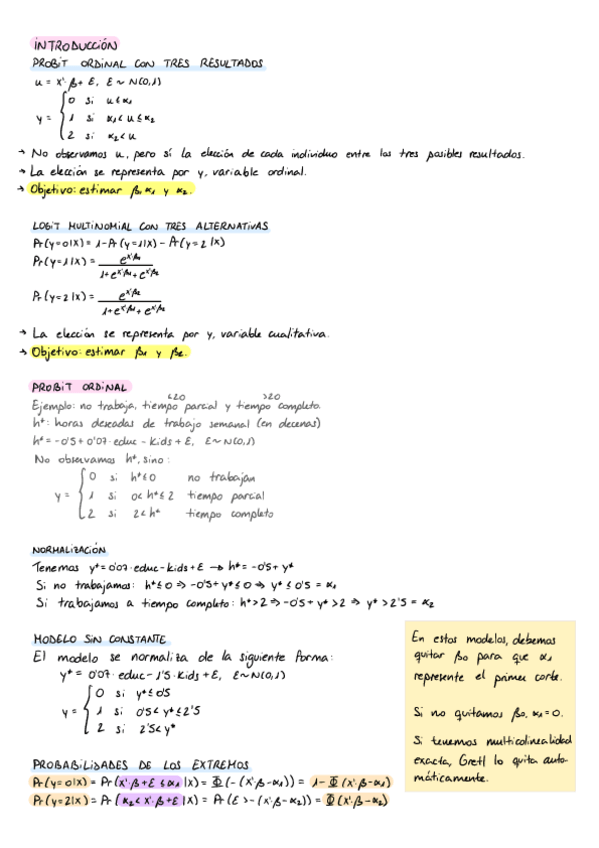 INTRODUCCIÓN
PROBIT ORDINAL CON TRES RESULTADOS
u = x'·β + ε, ε ~ N(0,1)
y = { 0 si u ≤ α1
1 si α1 < u ≤ α2
2 si α2 < u
→ No observamos u, pero sí la elección de cada individuo entre los tres posibles resultados.
→ La elección se representa por y, variable ordinal.
→ Objetivo: estimar β, α1 y α2.
LOGIT MULTINOMIAL CON TRES ALTERNATIVAS
Pr(y=0|X) = 1 - Pr(y=1|X) - Pr(y=2|X)
Pr(y=1|X) = e^x'β1 / 1+e^x'β1+e^x'β2
Pr(y=2|X) = e^x'β2 / 1+e^x'β1+e^x'β2
→ La elección se representa por y, variable cualitativa.
→ Objetivo: estimar β1 y β2.
PROBIT ORDINAL
<20 >20
Ejemplo: no trabaja, tiempo parcial y tiempo completo.
h*: horas deseadas de trabajo semanal (en decenas)
h* = -0'5 + 0'07·educ - kids + ε, ε ~ N(0,1)
No observamos h*, sino:
y = { 0 si h* ≤ 0 no trabajan
1 si 0 < h* ≤ 2 tiempo parcial
2 si 2 < h* tiempo completo
NORMALIZACIÓN
Tenemos y* = 0'07·educ - kids + ε → h* = -0'5 + y*
Si no trabajamos: h* ≤ 0 ⇒ -0'5 + y* ≤ 0 ⇒ y* ≤ 0'5 = α1
Si trabajamos a tiempo completo: h* > 2 ⇒ -0'5 + y* > 2 ⇒ y* > 2'5 = α2
MODELO SIN CONSTANTE
El modelo se normaliza de la siguiente forma:
y* = 0'07·educ - 1'5·kids + ε, ε ~ N(0,1)
y = { 0 si y* ≤ 0'5
1 si 0'5 < y* ≤ 2'5
2 si 2'5 < y*
En estos modelos, debemos
quitar β0 para que α1
represente el primer corte.
Si no quitamos β0, α1 = 0.
Si tenemos multicolinealidad
exacta, Gretl lo quita auto-
máticamente.
PROBABILIDADES DE LOS EXTREMOS
Pr(y=0|X) = Pr(x'·β + ε ≤ α1|X) = Φ(-(x'·β-α1)) = 1 - Φ(x'·β-α1)
Pr(y=2|X) = Pr(α2 < x'·β + ε|X) = Pr(ε > -(x'·β-α2)) = Φ(x'·β-α2)